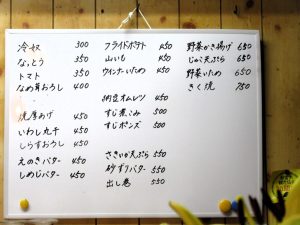 冷奴 300
なっとう 350
トマト 350
なめ茸おろし 400
焼厚あげ 450
いわし丸干 450
しらすおろし 450
えのきバター 450
しめじバター 450
フライドポテト 450
山いも 450
ウインナーいため 450
納豆オムレツ 450
すじ煮こみ 500
すじポンズ 500
さきいか天ぷら 550
砂ずりバター 550
出し巻 550
野菜かき揚げ 650
じゃが天ぷら 650
野菜いため 650
きく焼 750